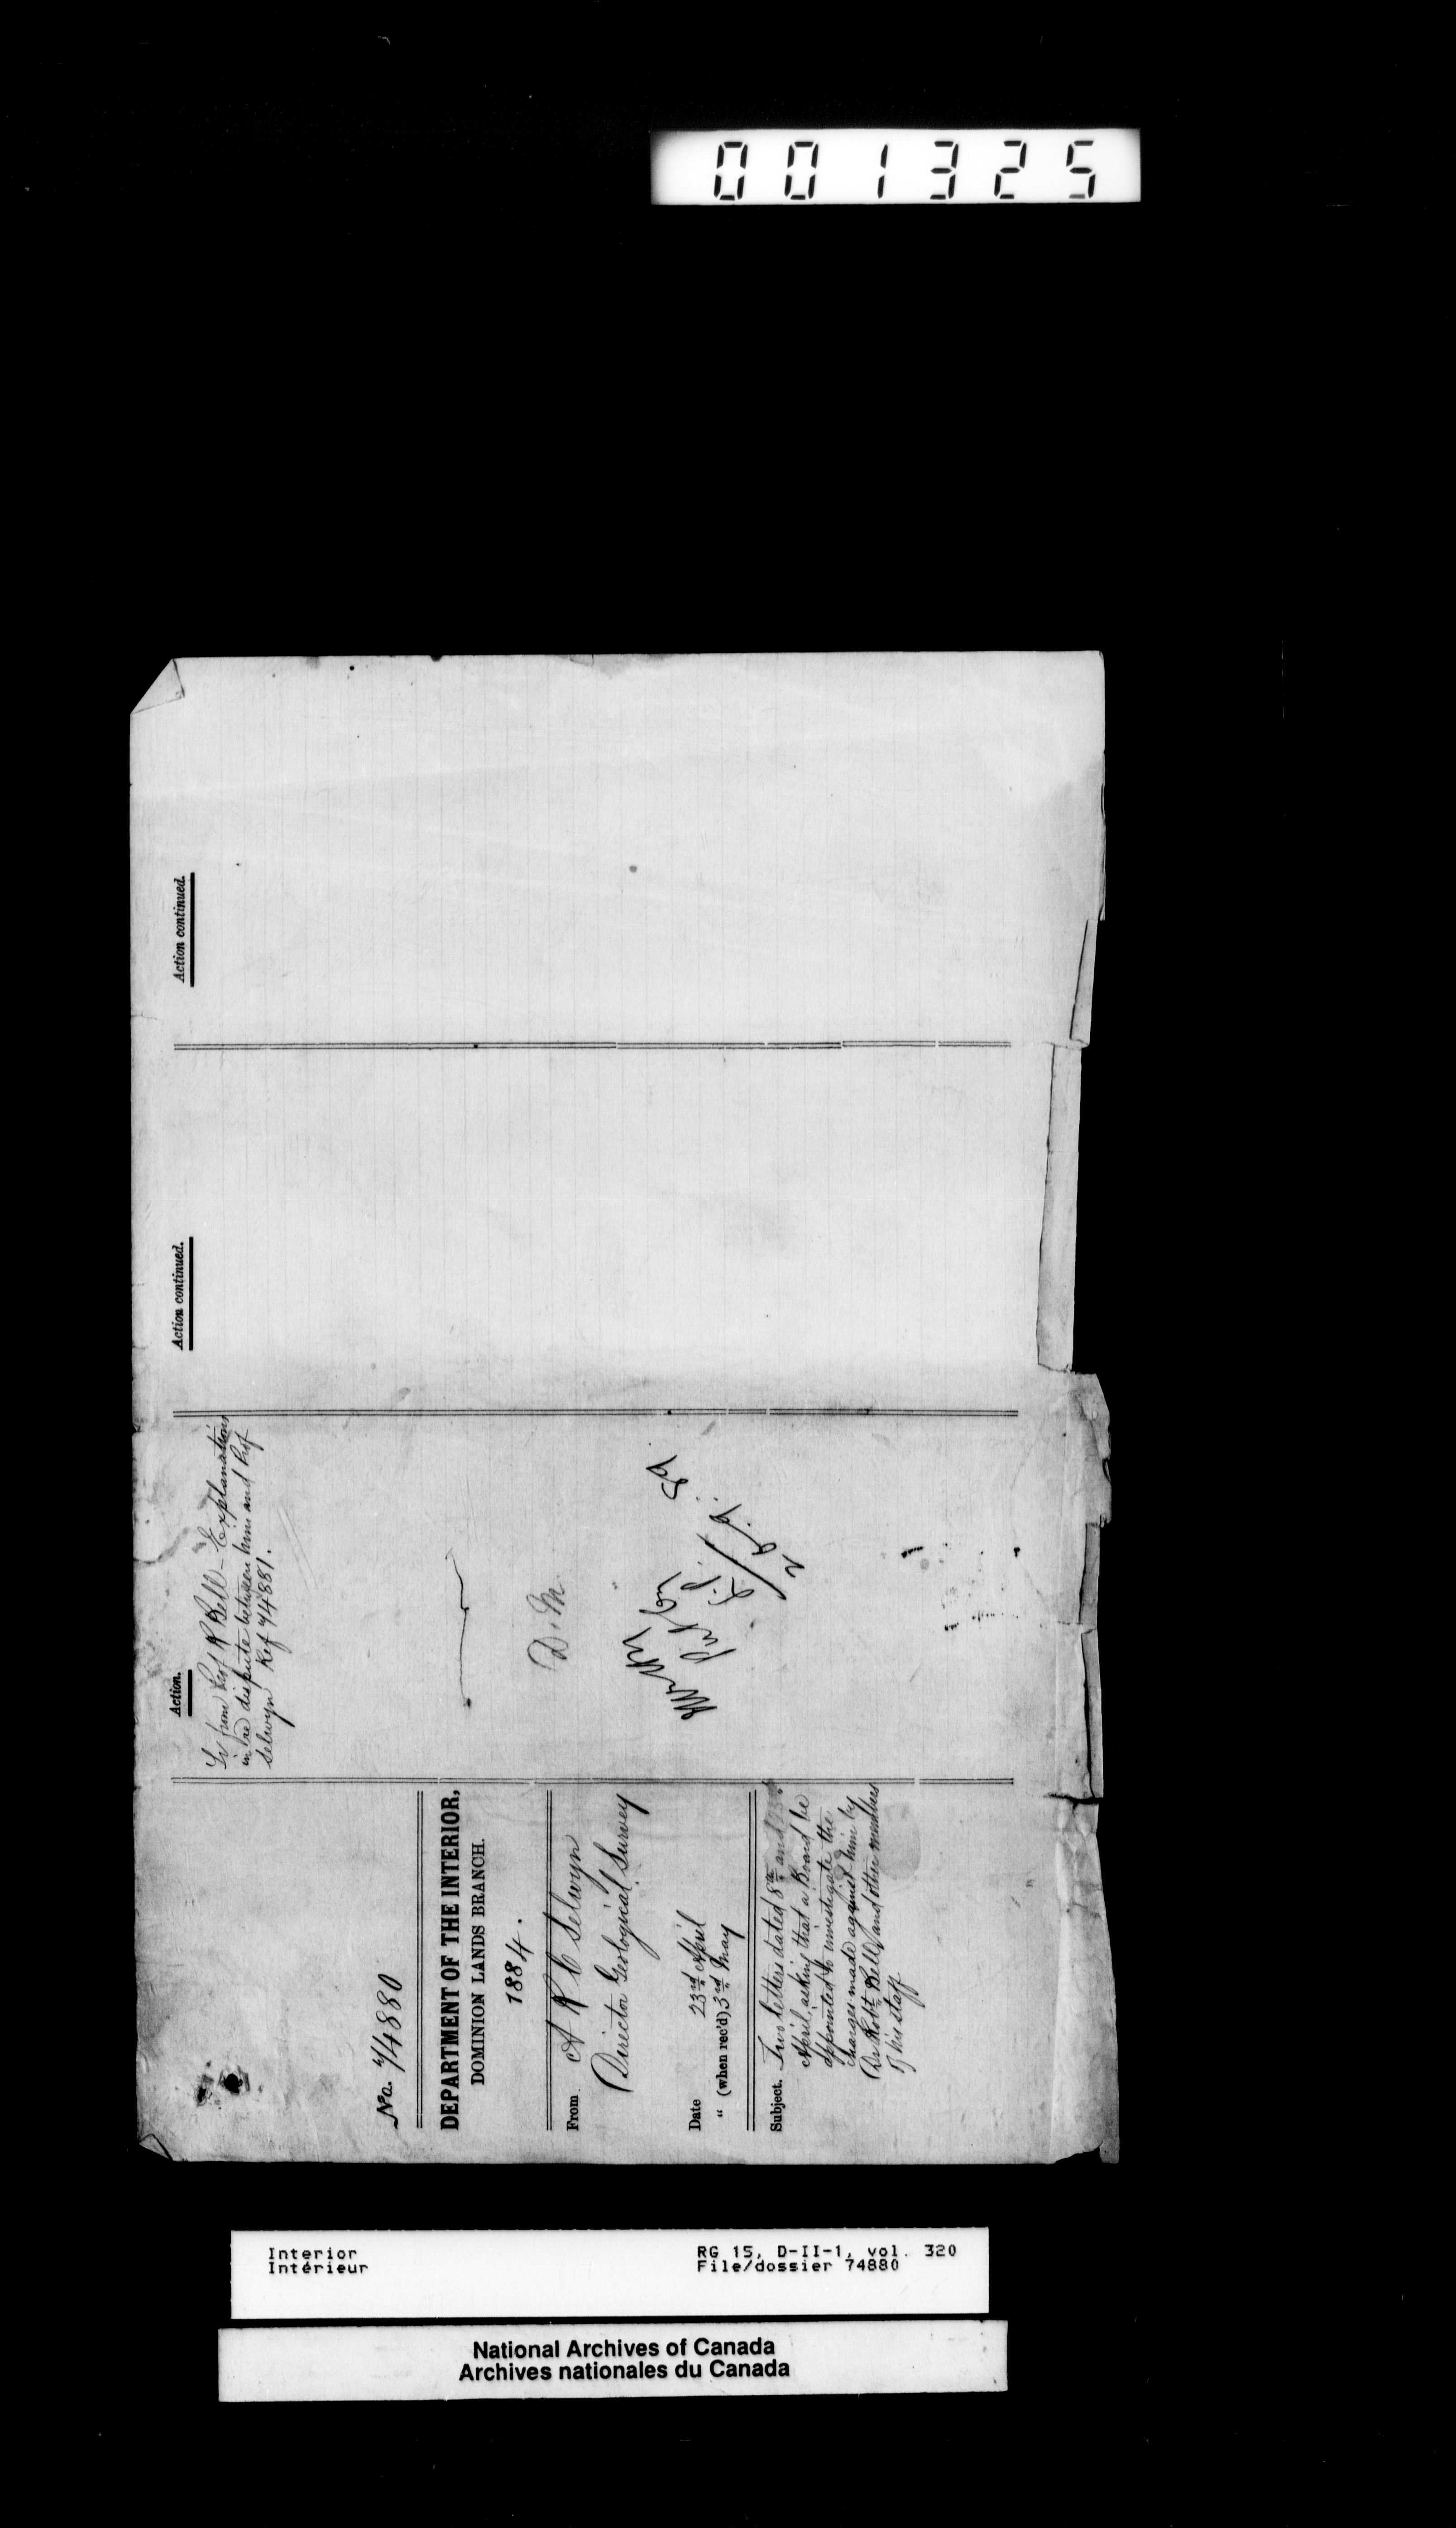 001325
No. 74880
DEPARTMENT OF THE INTERIOR,
DOMINION LANDS BRANCH.
1884.
From A R C Selwyn
Director Geological Survey
Date 23rd April
" (when rec'd) 3rd May
Subject. Two letters dated 8th and
April, asking that a Board be
appointed to investigate the
charges made against him by
Dr Robt Bell and other members
of his staff
Action.
Lr from Prof R Bell - Explanations
in re dispute between him and Prof
Selwyn Ref 74881.
D. M
Put
Action continued.
Action continued.
Interior
Intérieur
RG 15, D-II-1, vol. 320
File/dossier 74880
National Archives of Canada
Archives nationales du Canada